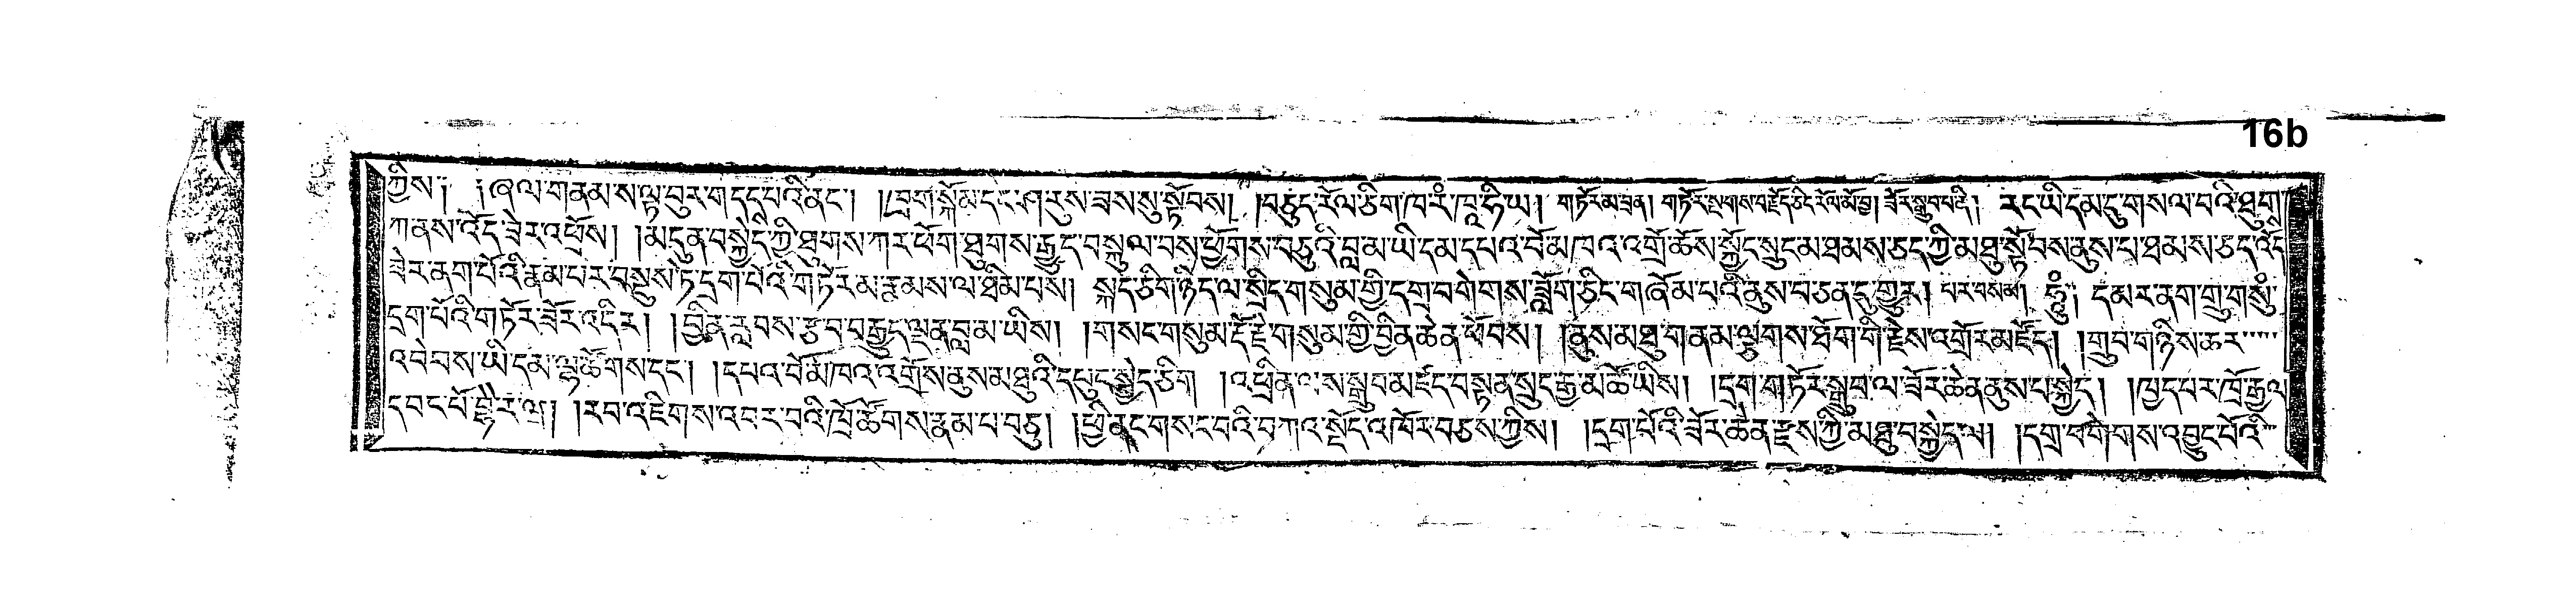 16b
ཀྱིས། །ཞལ་གནམ་ས་ལྟ་བུར་གདང་པའི་ནང་། །ཁྲག་སྐོམ་དང་ཤ་རུས་ཟས་སུ་སྟོབས། །བཅུད་རོལ་ཅིག་ཁ་རཾ་ཁཱ་ཧི་ཡ། གཏོར་མ་བྲན། གཏོར་སྔགས་བརྗོད་ཅིང་རོལ་མོ་བྱ། ཟོར་སྒྲུབ་པ་ནི། རང་ཡི་དམ་དུ་གསལ་བའི་ཐུག
ཀ་ནས་འོད་ཟེར་འཕྲོས། །མདུན་བསྐྱེད་ཀྱི་ཐུགས་ཀར་ཕོག་ཐུགས་རྒྱུད་བསྐུལ་བས་ཕྱོགས་བཅུའི་བླ་མ་ཡི་དམ་དཔའ་བོ་མཁའ་འགྲོ་ཆོས་སྐྱོང་སྲུང་མ་ཐམས་ཅད་ཀྱི་མཐུ་སྟོབས་ནུས་པ་ཐམས་ཅད་འོད
ཟེར་ནག་པོའི་རྣམ་པར་བསྡུས་ཏེ་དྲག་པོའི་གཏོར་མ་རྣམས་ལ་ཐིམ་པས། སྐད་ཅིག་ཉིད་ལ་སྲིད་གསུམ་གྱི་དགྲ་བགེགས་ཟློག་ཅིང་གཞོམ་པའི་ནུས་པ་ཅན་དུ་གྱུར། པར་བསམ། ཧཱུྃ༔ དམར་ནག་གྲུ་གསུཾ་
དྲག་པོའི་གཏོར་ཟོར་འདིར། །བྱིན་རླབས་རྩ་བ་བརྒྱུད་ལྡན་བླ་མ་ཡིས། །གསང་གསུམ་རྡོ་རྗེ་གསུམ་གྱི་བྱིན་ཆེན་ཕོབས། །ནུས་མཐུ་གནམ་ལྕགས་ཐོག་གི་རྗེས་འགྲོར་མཛོད། །གྲུབ་གཉིས་ཆར་
འབེབས་ཡི་དམ་ལྷ་ཚོགས་དང་། །དཔའ་བོ་མཁའ་འགྲོས་ནུས་མཐུའི་དཔུང་སྐྱེད་ཅིག །འཕྲིན་ལས་སྒྲུབ་མཛད་བསྟན་སྲུང་རྒྱ་མཚོ་ཡིས། །དྲག་གཏོར་སྒྲུབ་ལ་ཟོར་ཆེན་ནུས་པ་སྐྱེད། །ཁྱད་པར་ཁྲོ་རྒྱལ
དབང་པོ་ཧེ་རུ་ཀ །རབ་འཇིགས་འབར་བའི་ཁྲོ་ཚོགས་རྣམ་པ་བཅུ། །ཕྱི་ནང་གསང་བའི་བཀའ་སྡོད་འཁོར་བཅས་ཀྱིས། །དྲག་པོའི་ཟོར་ཆེན་རྫས་ཀྱི་མཐུ་བསྐྱེད་ལ། །དགྲ་བགེགས་འབྱུང་པོའི